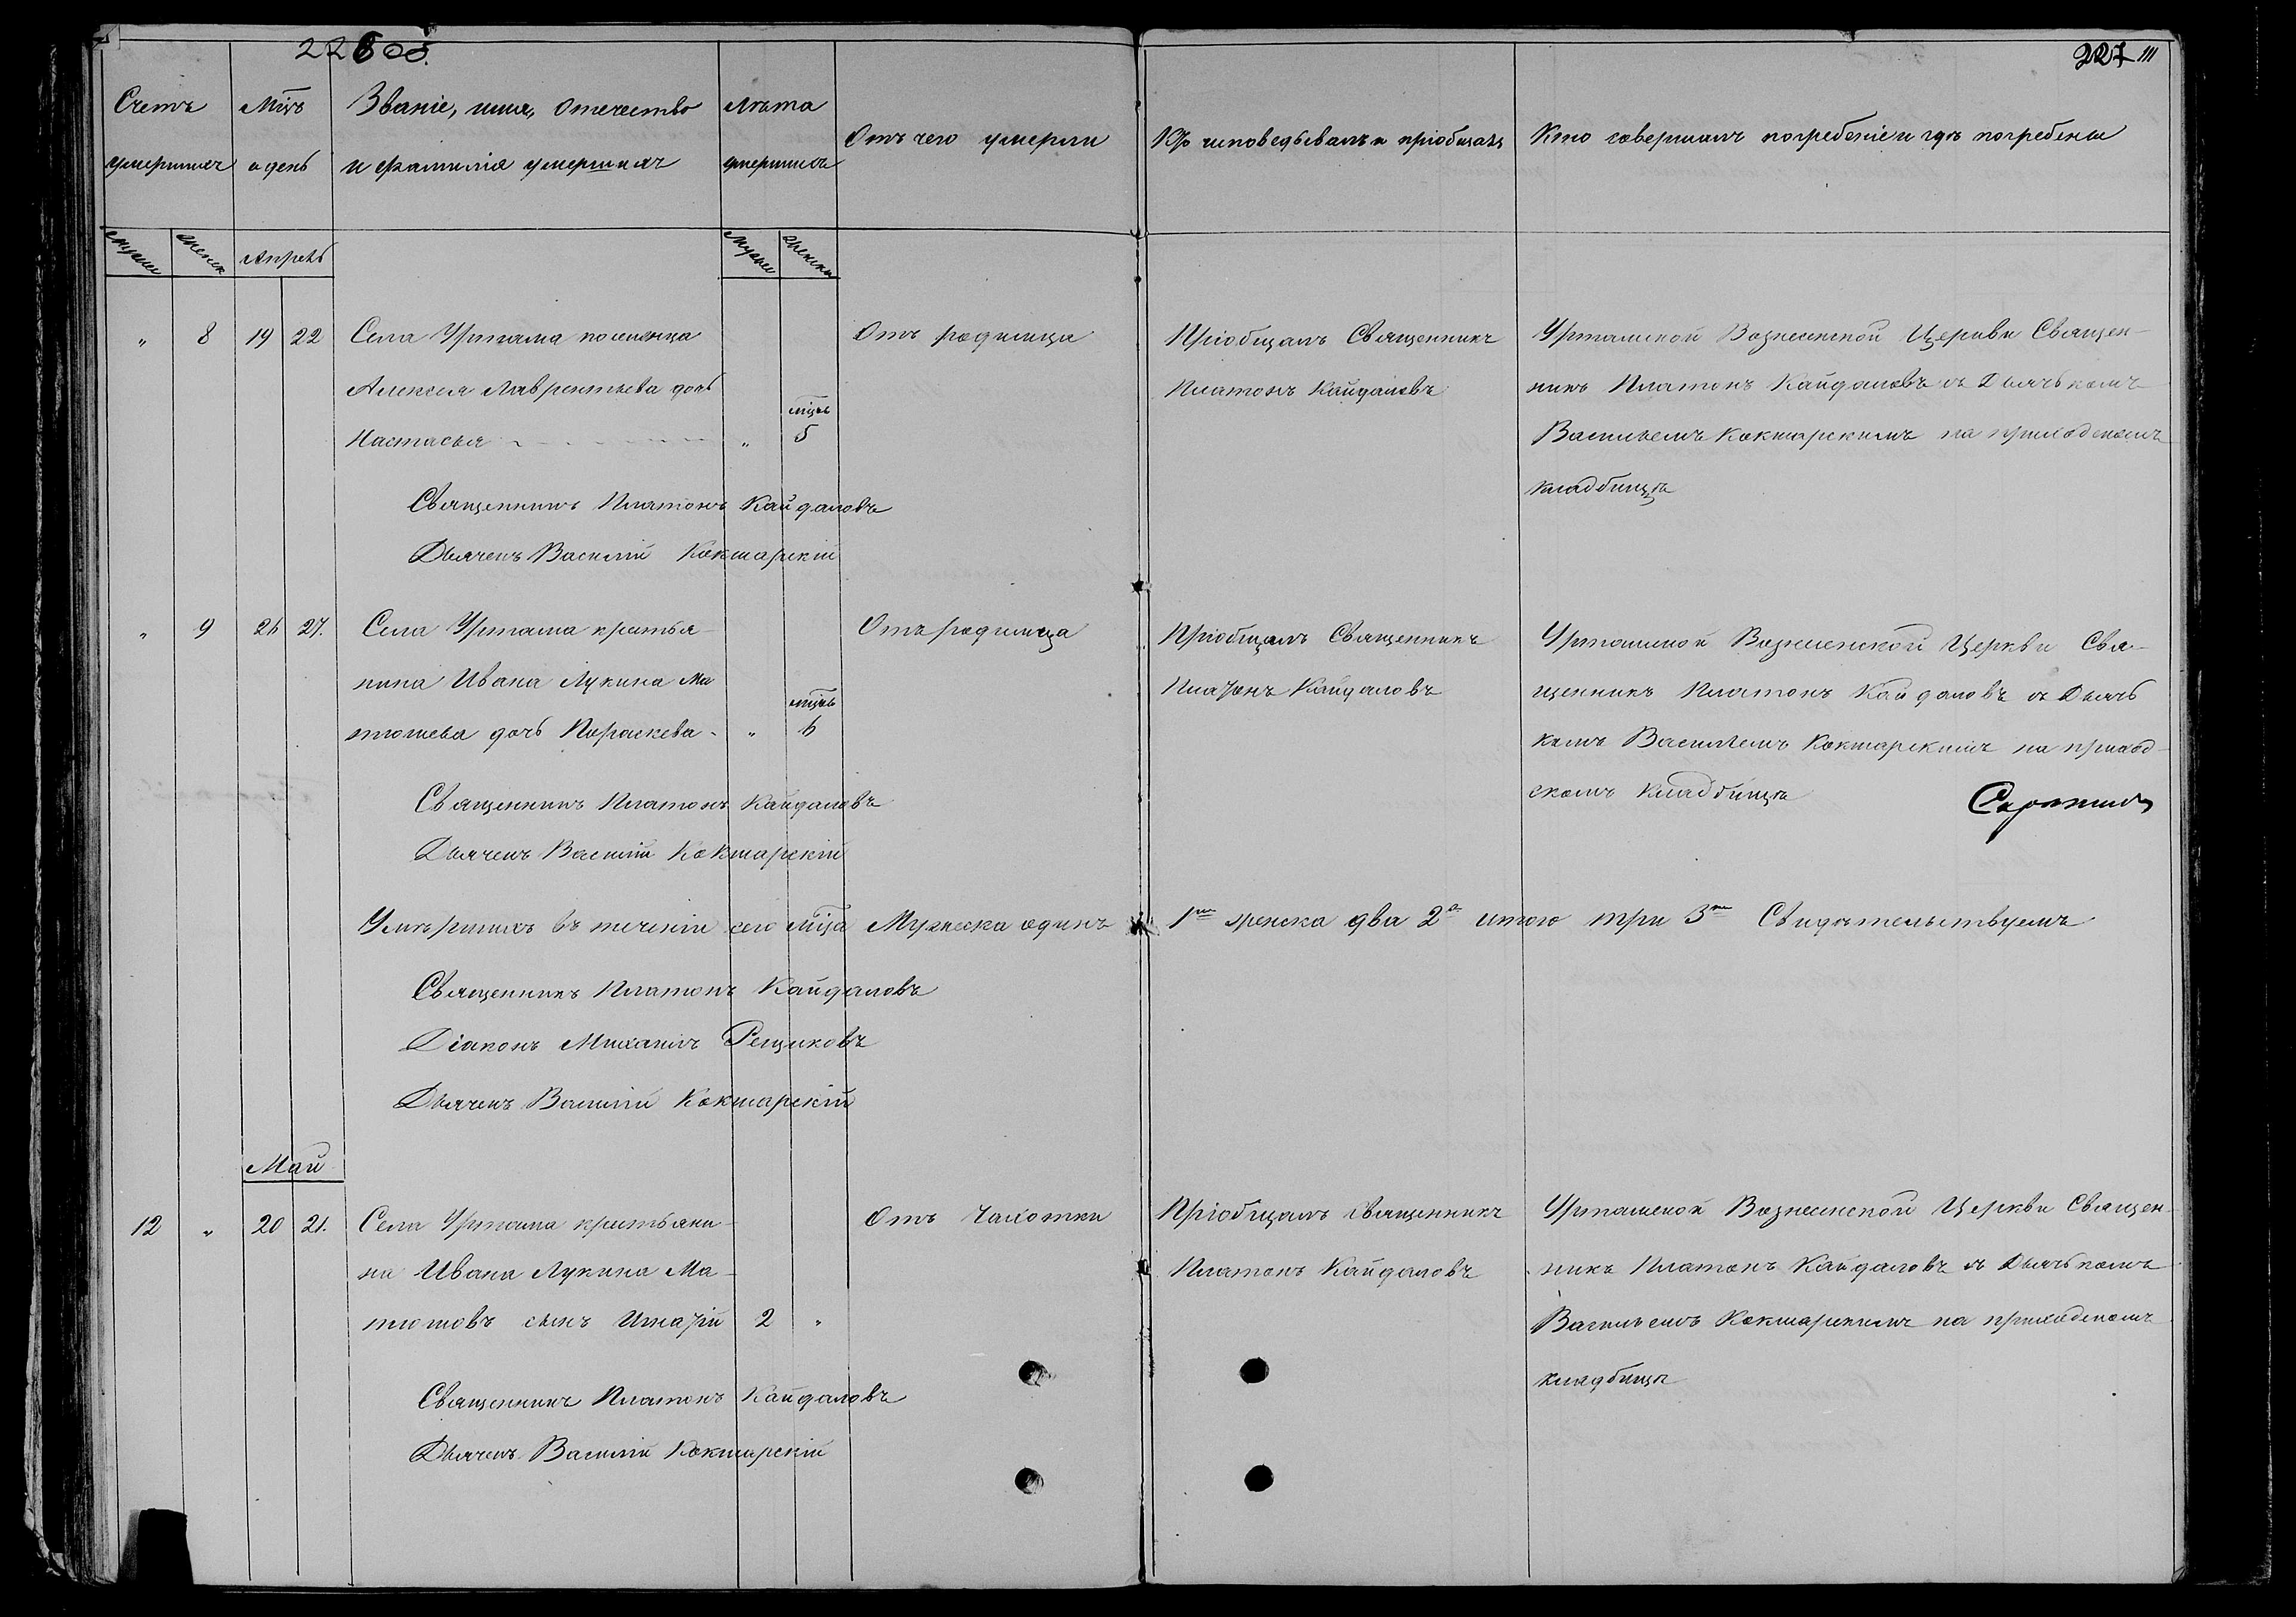 226 об.
227
Счетъ умершихъ
Мцъ и день
Званіе, имя, отечество и фамилія умершихъ
Лѣта умершихъ
Отъ чего умерли
Кто исповедывалъ и пріобщалъ
Кто совершалъ погребеніе и гдѣ погребены
Мужеска
Женск
Апрель
Мужеска
Женска
" 8 19 22
Села Уртама поселенца
Алексея Лаврентьева дочь
Настасья " мцъ 5
Отъ родимца
Пріобщалъ Священникъ
Платонъ Кайдаловъ
Уртамской Вознесенской Церкви Священ-
никъ Платонъ Кайдаловъ съ Дьячькомъ
Васильемъ Кокшарскимъ на приходскомъ
кладбищѣ
Священникъ Платонъ Кайдаловъ
Дьячекъ Василій Кокшарскій
" 9 26 27.
Села Уртама крестья-
нина Ивана Лукина Ма
тюшева дочь Пораскева - " мцъ 6
Отъ родимца
Пріобщалъ Священникъ
Платонъ Кайдаловъ
Уртамской Вознесенской Церкви Свя-
щенникъ Платонъ Кайдаловъ съ Дьячь
комъ Васильемъ Кокшарскимъ на приход-
скомъ кладбищѣ
Священникъ Платонъ Кайдаловъ
Дьячекъ Василій Кокшарскій
Умѣршихъ въ теченіи сего мца Мужеска одинъ 1 женска два 2 итого три 3 Свидѣтельствуемъ
Священникъ Платонъ Кайдаловъ
Діаконъ Михаилъ Рещиковъ
Дьячекъ Василій Кокшарскій
Май
12 " 20 21.
Села Уртама крестьяни-
на Ивана Лукина Ма-
тюшовъ сынъ Игнатій 2 "
Отъ Чахотки
Пріобщалъ священникъ
Платонъ Кайдаловъ
Уртамской Вознесенской Церкви Священ-
никъ Платонъ Кайдаловъ съ Дьячькомъ
Васильемъ Кокшарскимъ на приходскомъ
кладбищѣ
Священникъ Платонъ Кайдаловъ
Дьячекъ Василій Кокшарскій